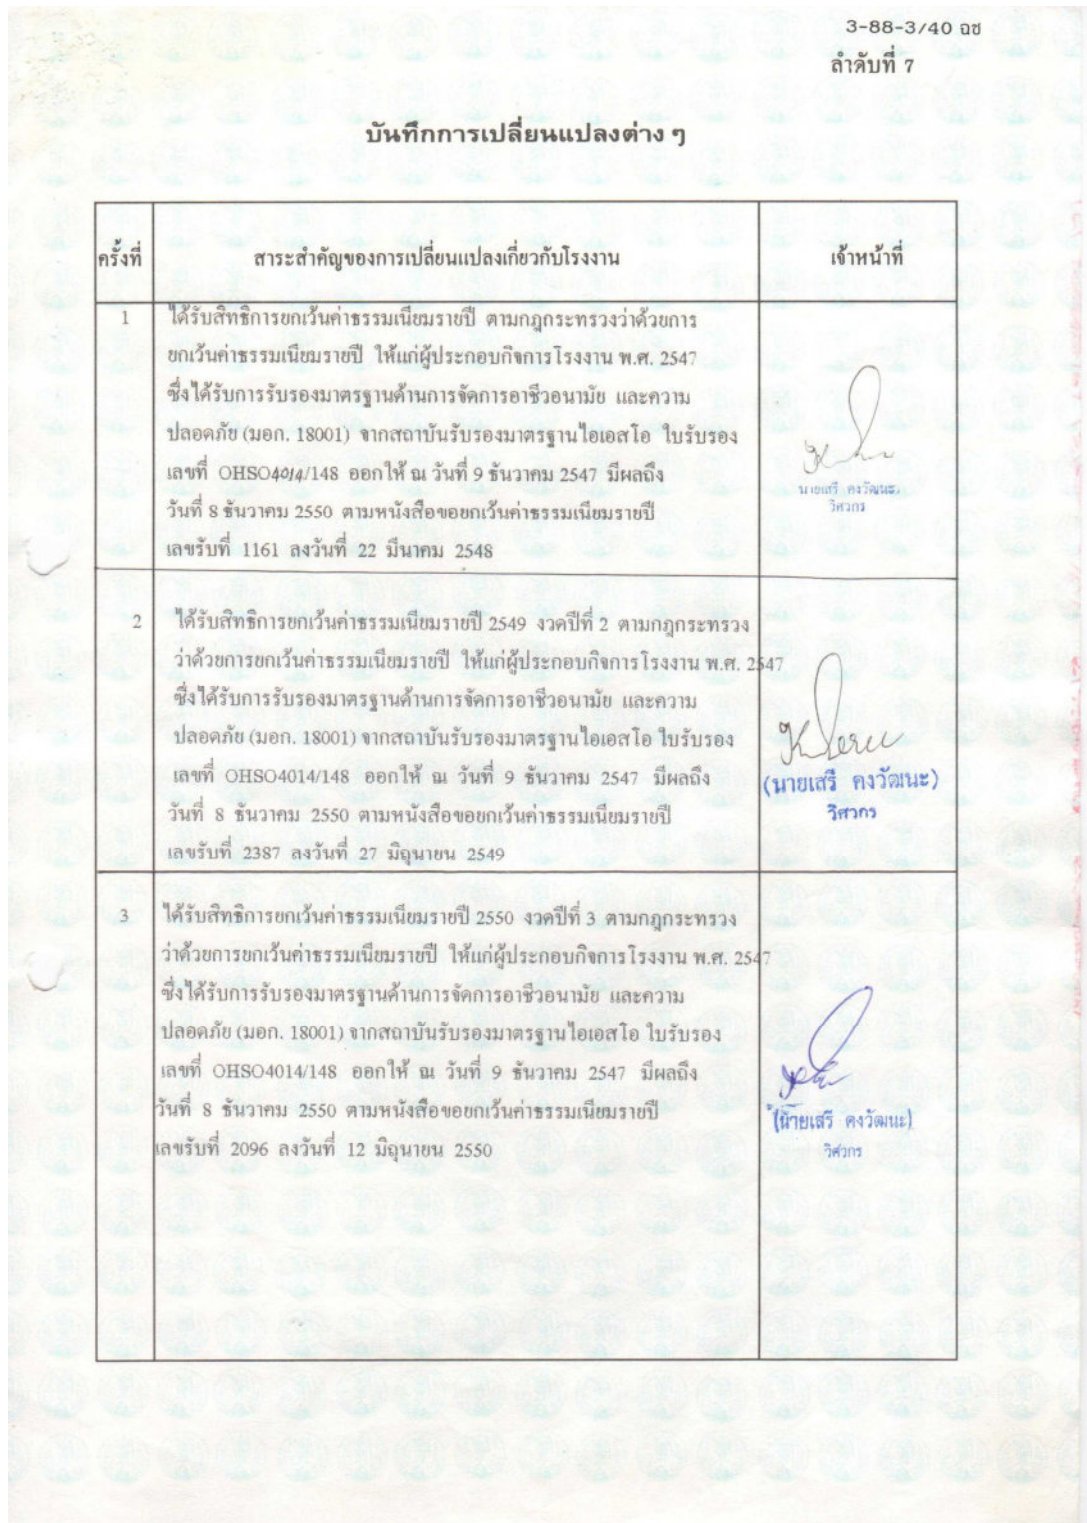 3-88-3/40 ฉช
ลำดับที่ 7
บันทึกการเปลี่ยนแปลงต่าง ๆ
ครั้งที่
สาระสำคัญของการเปลี่ยนแปลงเกี่ยวกับโรงงาน
เจ้าหน้าที่
1
ได้รับสิทธิการยกเว้นค่าธรรมเนียมรายปี ตามกฎกระทรวงว่าด้วยการ
ยกเว้นค่าธรรมเนียมรายปี ให้แก่ผู้ประกอบกิจการโรงงาน พ.ศ. 2547
ซึ่งได้รับการรับรองมาตรฐานด้านการจัดการอาชีวอนามัย และความ
ปลอดภัย (มอก. 18001) จากสถาบันรับรองมาตรฐานไอเอสโอ ใบรับรอง
เลขที่ OHSO4014/148 ออกให้ ณ วันที่ 9 ธันวาคม 2547 มีผลถึง
วันที่ 8 ธันวาคม 2550 ตามหนังสือขอยกเว้นค่าธรรมเนียมรายปี
เลขรับที่ 1161 ลงวันที่ 22 มีนาคม 2548
นายเสรี คงวัฒนะ
วิศวกร
2
ได้รับสิทธิการยกเว้นค่าธรรมเนียมรายปี 2549 งวดปีที่ 2 ตามกฎกระทรวง
ว่าด้วยการยกเว้นค่าธรรมเนียมรายปี ให้แก่ผู้ประกอบกิจการโรงงาน พ.ศ. 2547
ซึ่งได้รับการรับรองมาตรฐานด้านการจัดการอาชีวอนามัย และความ
ปลอดภัย (มอก. 18001) จากสถาบันรับรองมาตรฐานไอเอสโอ ใบรับรอง
เลขที่ OHSO4014/148 ออกให้ ณ วันที่ 9 ธันวาคม 2547 มีผลถึง
วันที่ 8 ธันวาคม 2550 ตามหนังสือขอยกเว้นค่าธรรมเนียมรายปี
เลขรับที่ 2387 ลงวันที่ 27 มิถุนายน 2549
(นายเสรี คงวัฒนะ)
วิศวกร
3
ได้รับสิทธิการยกเว้นค่าธรรมเนียมรายปี 2550 งวดปีที่ 3 ตามกฎกระทรวง
ว่าด้วยการยกเว้นค่าธรรมเนียมรายปี ให้แก่ผู้ประกอบกิจการโรงงาน พ.ศ. 2547
ซึ่งได้รับการรับรองมาตรฐานด้านการจัดการอาชีวอนามัย และความ
ปลอดภัย (มอก. 18001) จากสถาบันรับรองมาตรฐานไอเอสโอ ใบรับรอง
เลขที่ OHSO4014/148 ออกให้ ณ วันที่ 9 ธันวาคม 2547 มีผลถึง
วันที่ 8 ธันวาคม 2550 ตามหนังสือขอยกเว้นค่าธรรมเนียมรายปี
เลขรับที่ 2096 ลงวันที่ 12 มิถุนายน 2550
(นายเสรี คงวัฒนะ)
วิศวกร